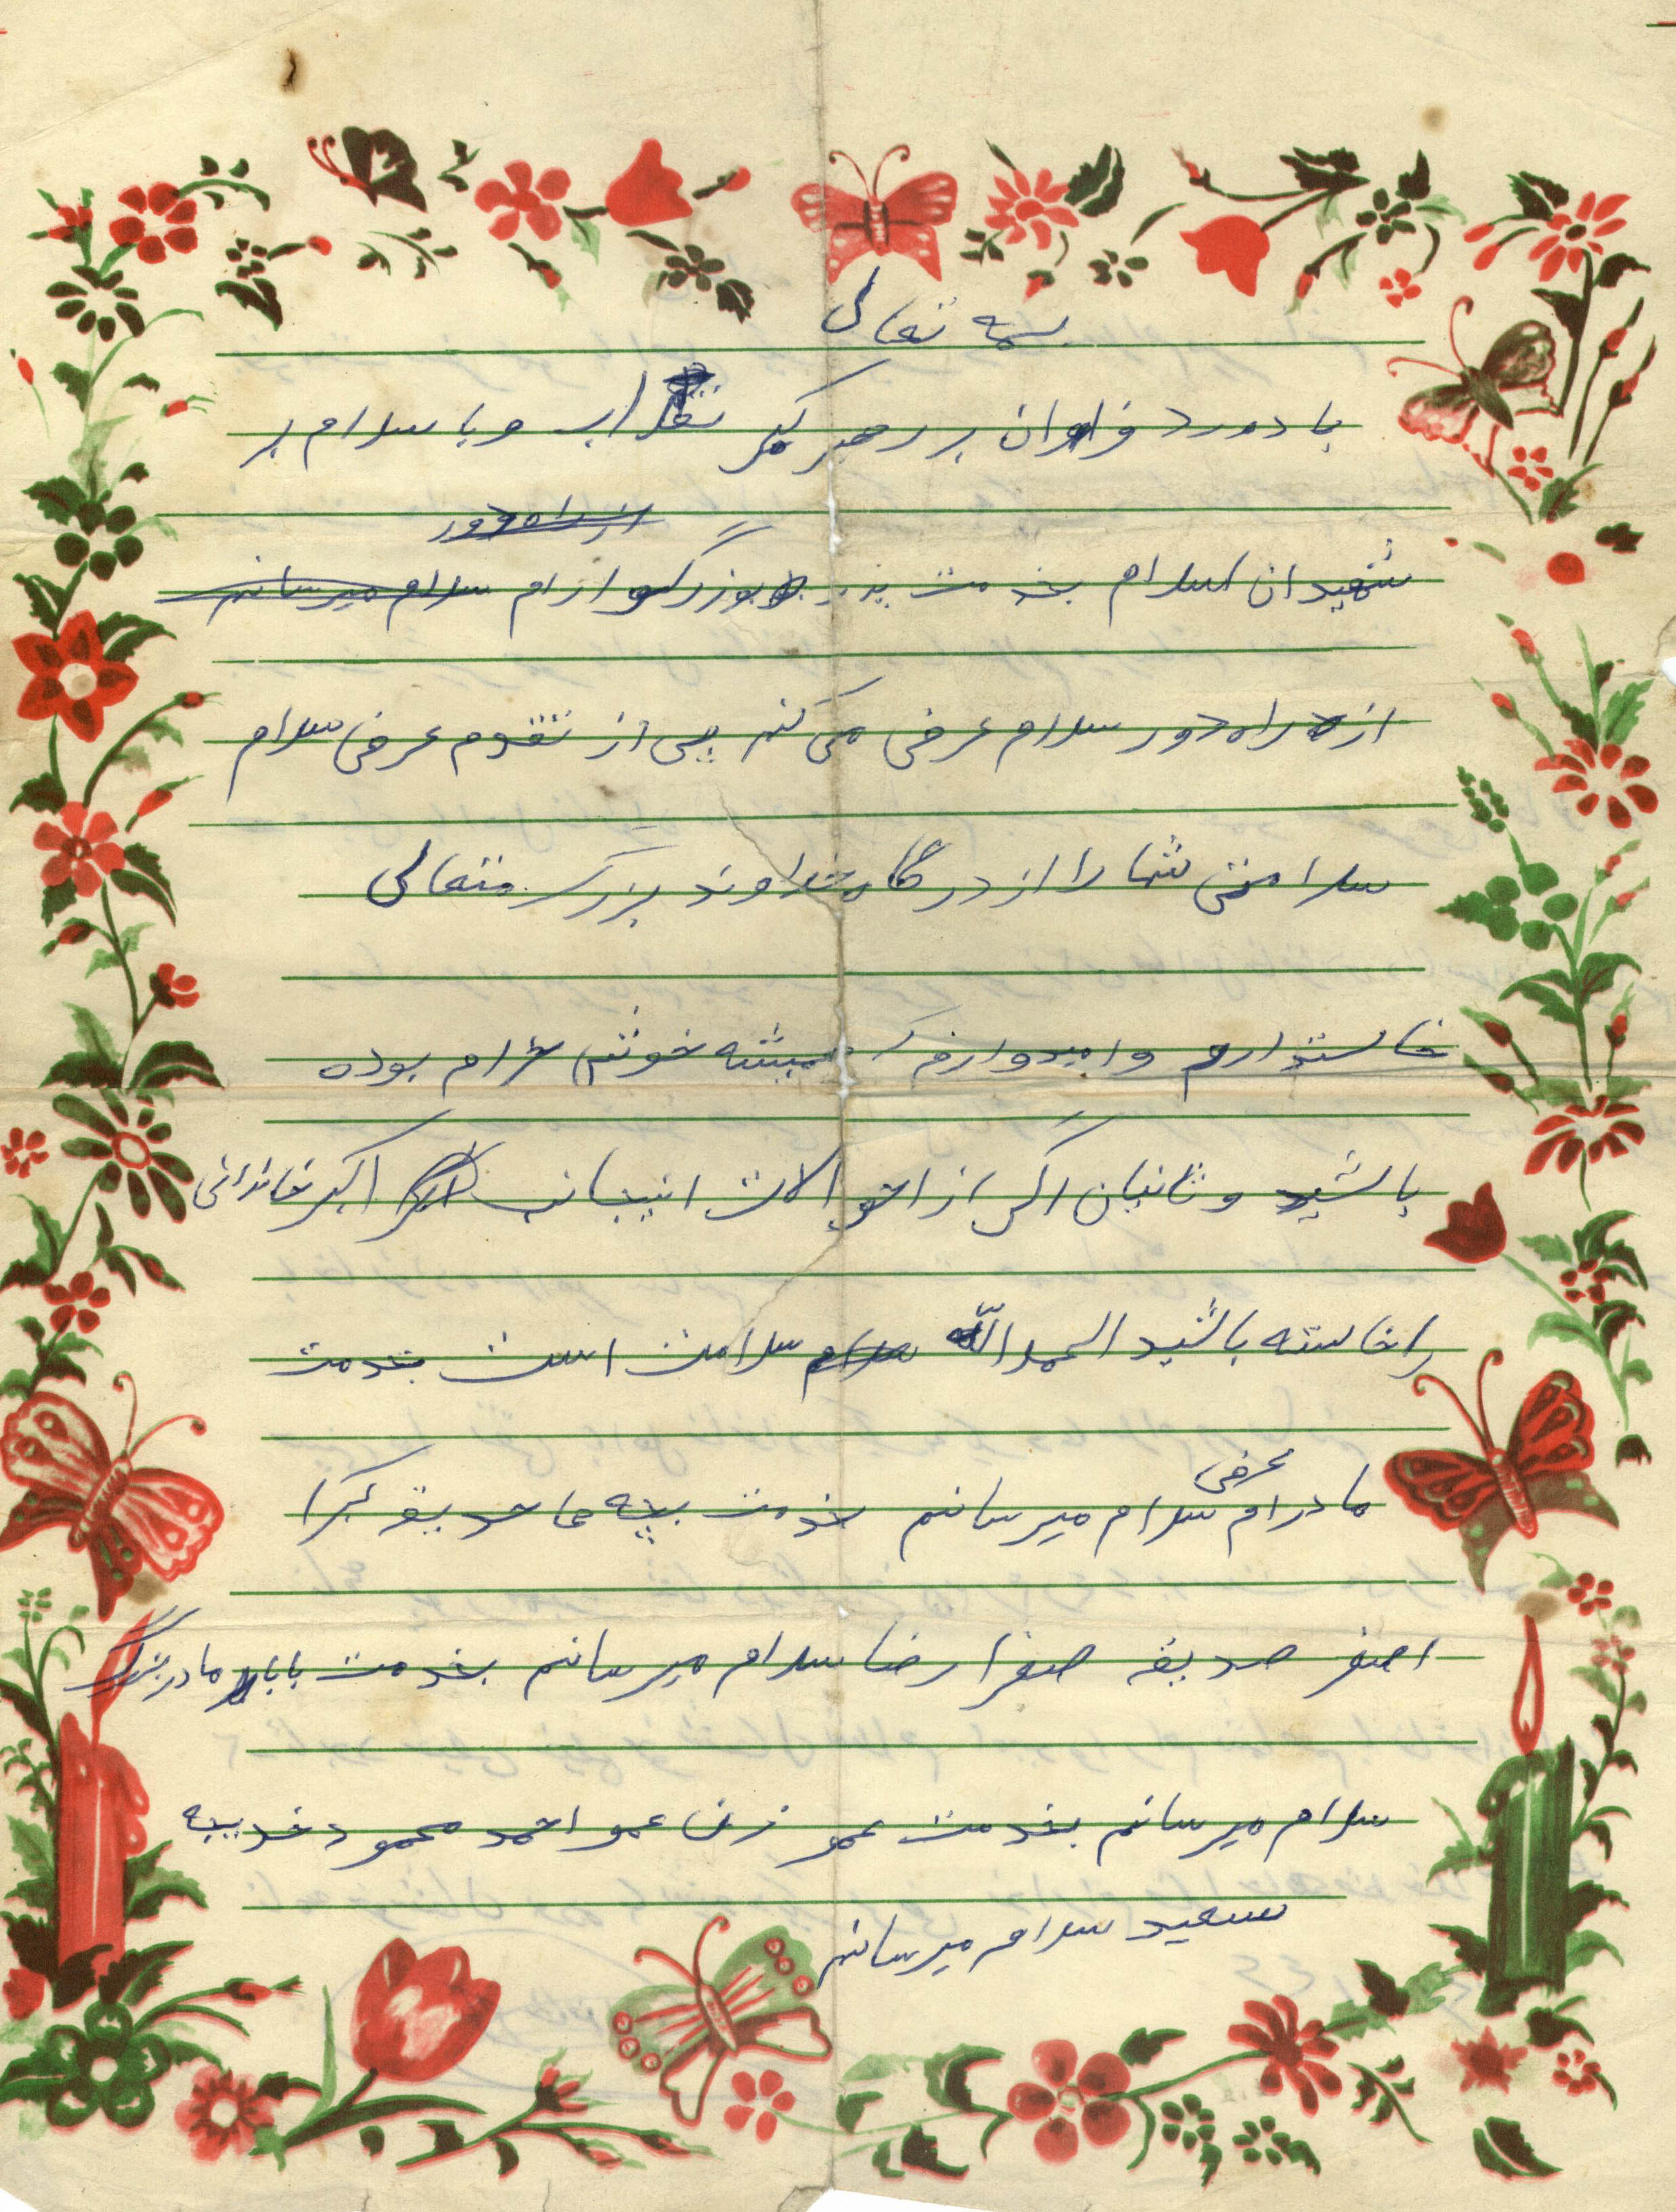 بسمه تعالی
با درود فراوان بر رهبر کبیر انقلاب و با سلام بر
از راه دور
شهیدان اسلام بخدمت پدر بزرگوارام سلام میرسانم
از راه دور سلام عرض می کنم پس از تقدم عرض سلام
سلامتی شما را از درگاه خداوند بزرگ متعالی
خاستدارم و امیدوارم که همیشه خوش خرام بوده
باشید و ثانیان اگر از احوالات اینجانب اکبر خاندائی
را خاسته باشید الحمدالله سلامت است بخدمت
عرض
مادرام سلام میرسانم خدمت بچه ها حدیقه کبرا
اصغر صدیقه صغرا رضا سلام میرسانم بخدمت بابا مادربزرگ
سلام میرسانم بخدمت عمو زن عمو احمد محمود خدیجه
سعید سلام میرسانم